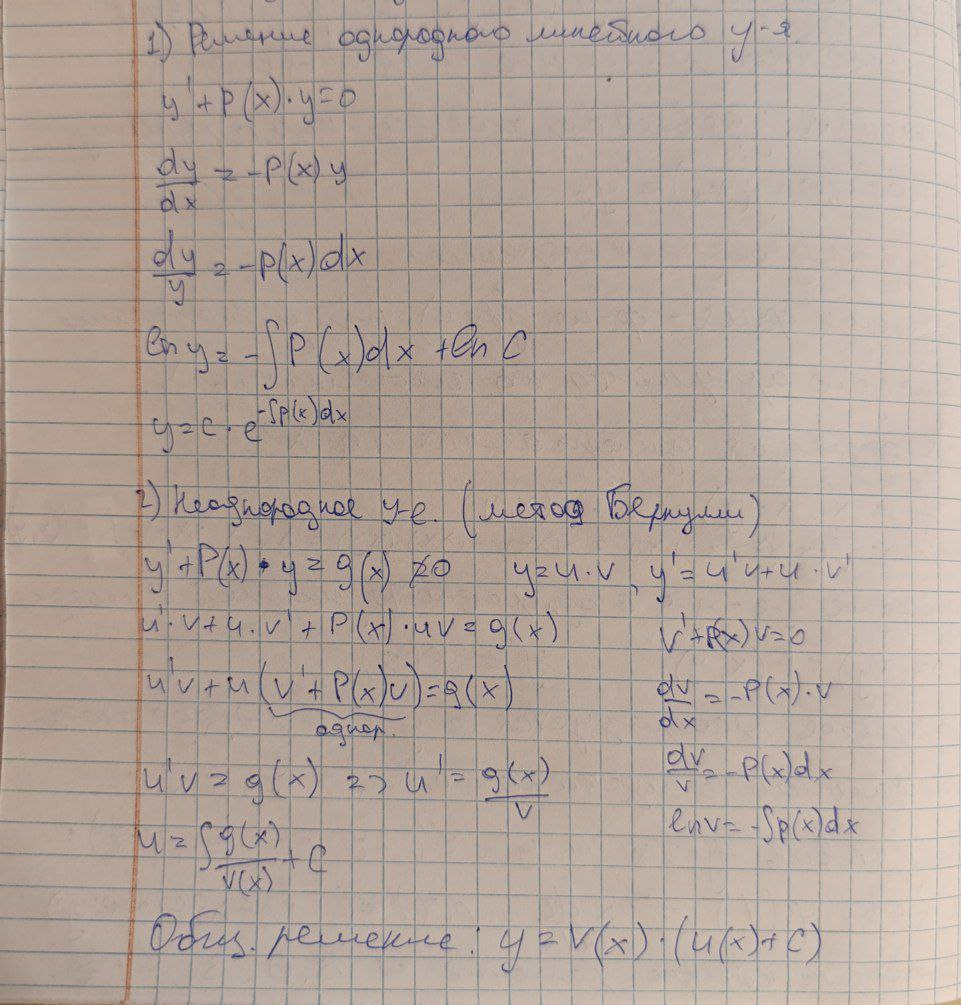 1) Решение однородного линейного у-я.
y' + P(x)·y=0
dy/dx = -P(x) y
dy/y = -p(x)dx
ln y = -∫P(x)dx + ln C
y = c · e^(-∫p(x)dx)
2) Неоднородное у-е. (метод Бернулли)
y' + P(x) · y = g(x) ≠0 y=u·v, y'=u'v+u·v'
u'·v+u·v' + P(x)·uv = g(x)
v'+P(x)v=0
u'v+u(v'+P(x)v)=g(x)
однор.
dv/dx = -P(x)·v
u'v = g(x) => u' = g(x)/v
dv/v = -P(x)dx
lnv = -∫p(x)dx
u = ∫g(x)/v(x) + C
Общ. решение: y = v(x)·(u(x)+C)